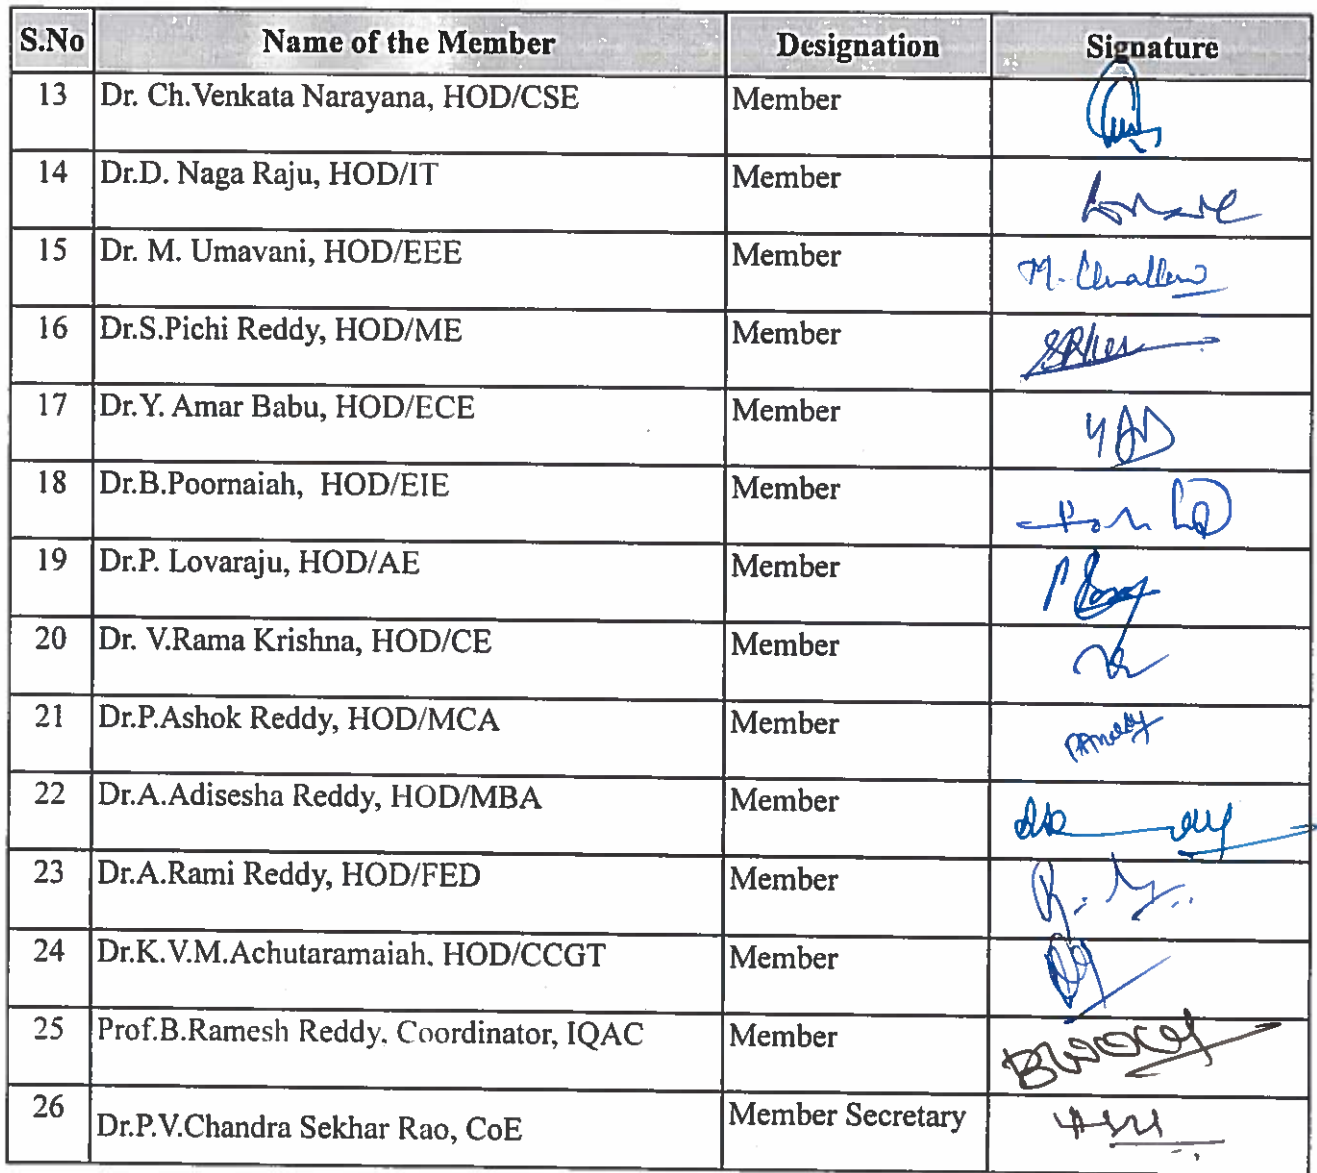 S.No Name of the Member Designation Signature
13 Dr. Ch.Venkata Narayana, HOD/CSE Member
14 Dr.D. Naga Raju, HOD/IT Member
15 Dr. M. Umavani, HOD/EEE Member
16 Dr.S.Pichi Reddy, HOD/ME Member
17 Dr.Y. Amar Babu, HOD/ECE Member
18 Dr.B.Poornaiah, HOD/EIE Member
19 Dr.P. Lovaraju, HOD/AE Member
20 Dr. V.Rama Krishna, HOD/CE Member
21 Dr.P.Ashok Reddy, HOD/MCA Member
22 Dr.A.Adisesha Reddy, HOD/MBA Member
23 Dr.A.Rami Reddy, HOD/FED Member
24 Dr.K.V.M.Achutaramaiah, HOD/CCGT Member
25 Prof.B.Ramesh Reddy, Coordinator, IQAC Member
26 Dr.P.V.Chandra Sekhar Rao, CoE Member Secretary